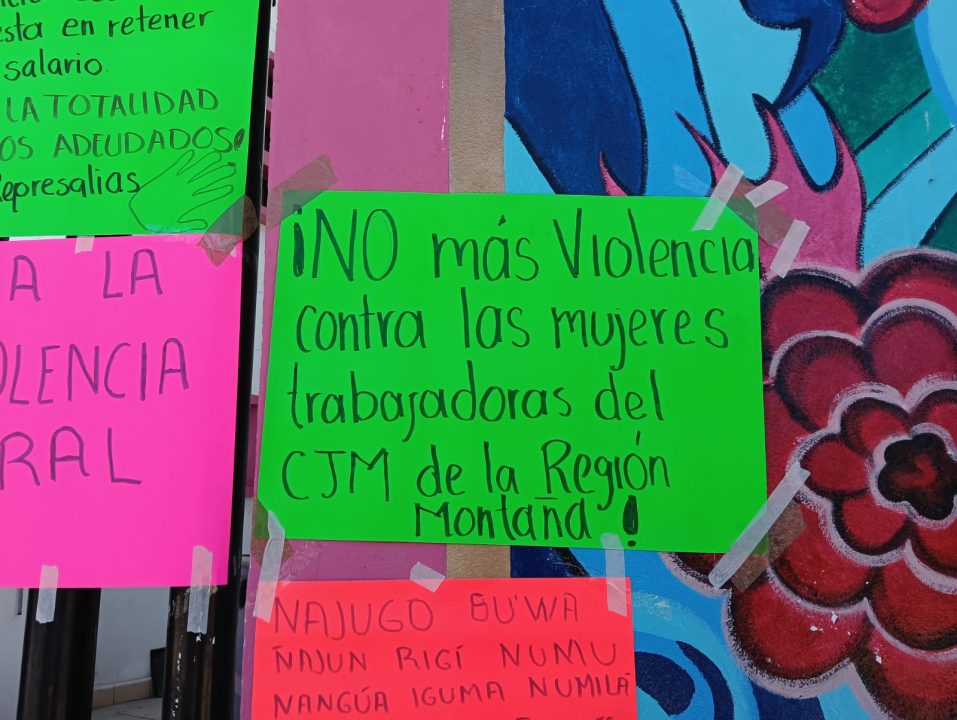 esta en retener
salario.
LA TOTALIDAD
OS ADEUDADOS!
Represalias
A LA
OLENCIA
RAL
¡NO más Violencia
contra las mujeres
trabajadoras del
CJM de la Región
Montaña!
NAJUGO BU'WA
ÑAJUN RIGÍ NUMU
NANGÚA IGUMA NUMILÁ